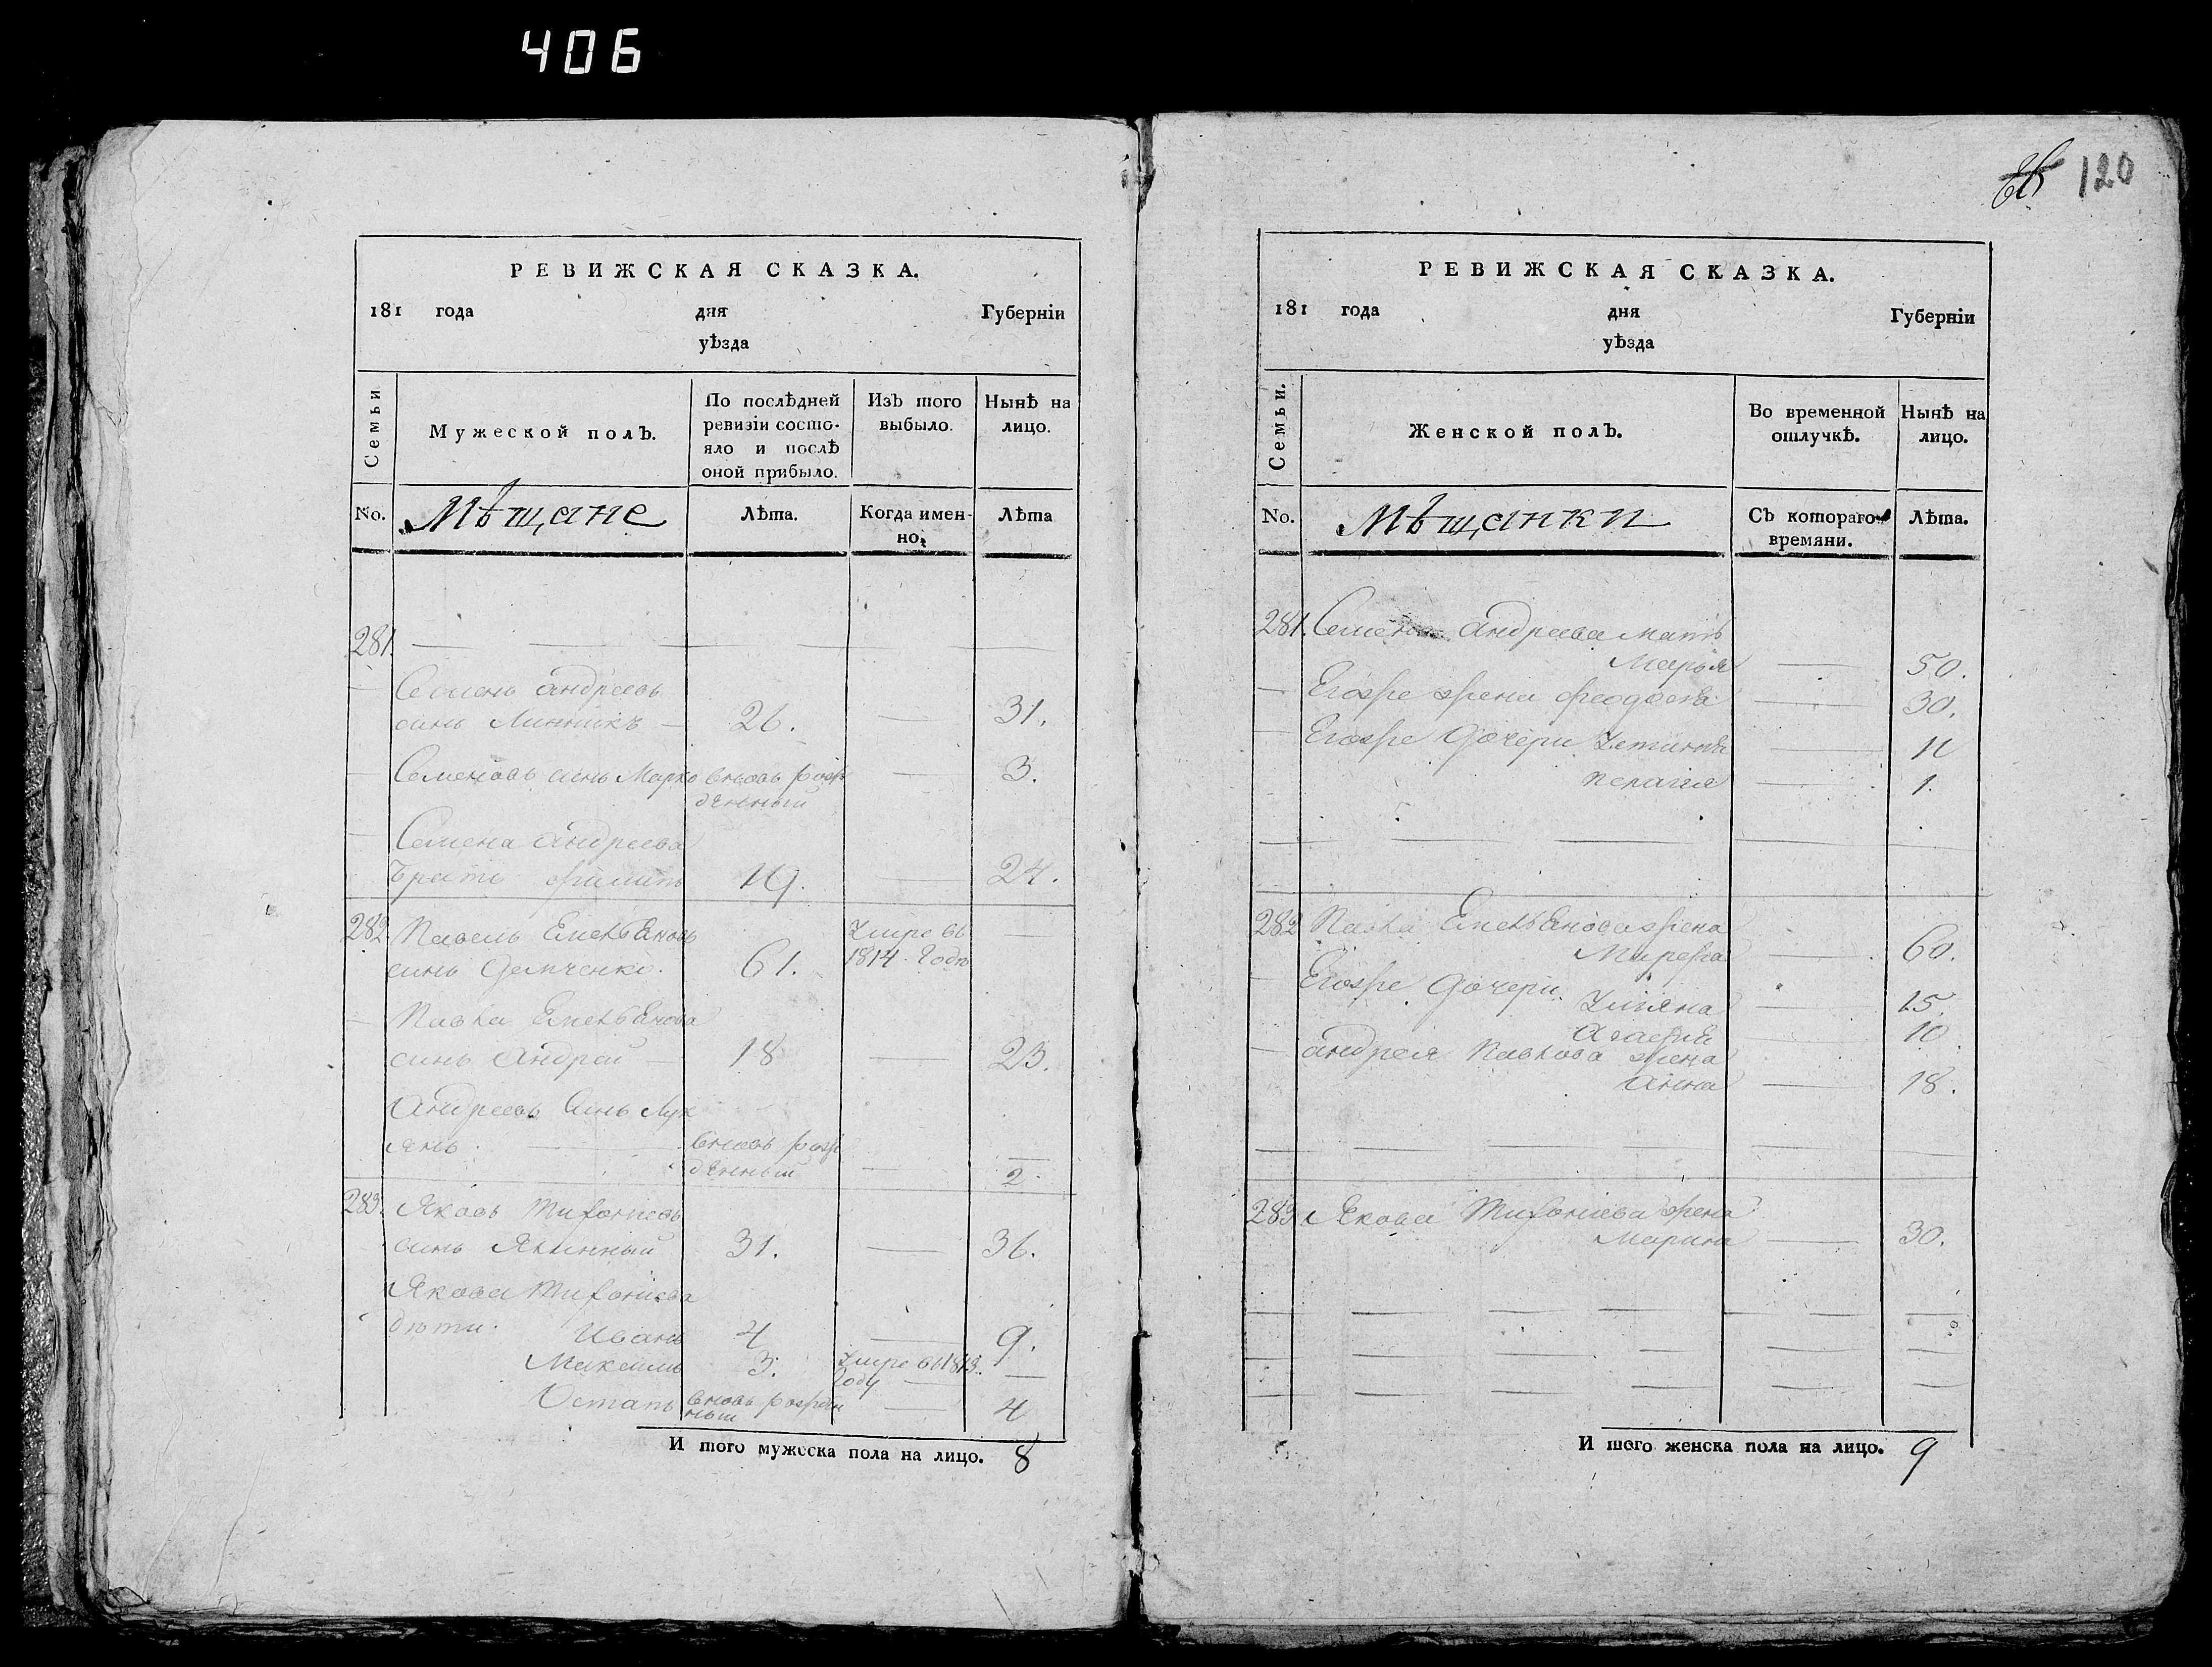 406
120
РЕВИЖСКАЯ СКАЗКА.
181 года дня Губерніи
уѣзда
Семьи
Мужеской полъ.
По послѣдней
ревизіи состо-
яло и послѣ
оной прибыло.
Изъ того
выбыло.
Нынѣ на
лицо.
No. Мѣщане
Лѣта.
Когда имен-
но.
Лѣта
281.
Семенъ Андреевъ
синъ Линникъ 26. 31.
Семеновъ синъ Марко вновь рож 3.
денный
Семена Андреева
братъ Филипъ 19. 24.
282. Павелъ Емельяновъ Умре въ
синъ Демченко. 61. 1814. Годѣ
Павла Емельянова
синъ Андрей 18 23.
Андреевъ Синъ Лук
янъ. вновь рож
денный 2.
283. Яковъ Тихоніевъ
синъ 31. 36.
Якова Тихоніева
дѣти. Иванъ 4 9.
Максимъ 3. Умре въ 1813.
Году
Остапъ вновь рожден 4
ный
И того мужеска пола на лицо. 8
РЕВИЖСКАЯ СКАЗКА.
181 года дня Губерніи
уѣзда
Семьи.
Женской полъ.
Во временной
отлучкѣ.
Нынѣ на
лицо.
No. Мѣщанки
Съ котораго
времяни.
Лѣта.
281. Семена Андреева мать
Марья 50.
Егоже жена Феодосія 30.
Егоже Дочери Устинія 11
Пелагія 1.
282 Павла Емельянова жена
60.
Егоже Дочери
Уліяна 15.
Агафія 10.
Андрея Павлова жена
Анна 18.
283. Якова Тихоніева жена
Марина 30.
И того женска пола на лицо. 9